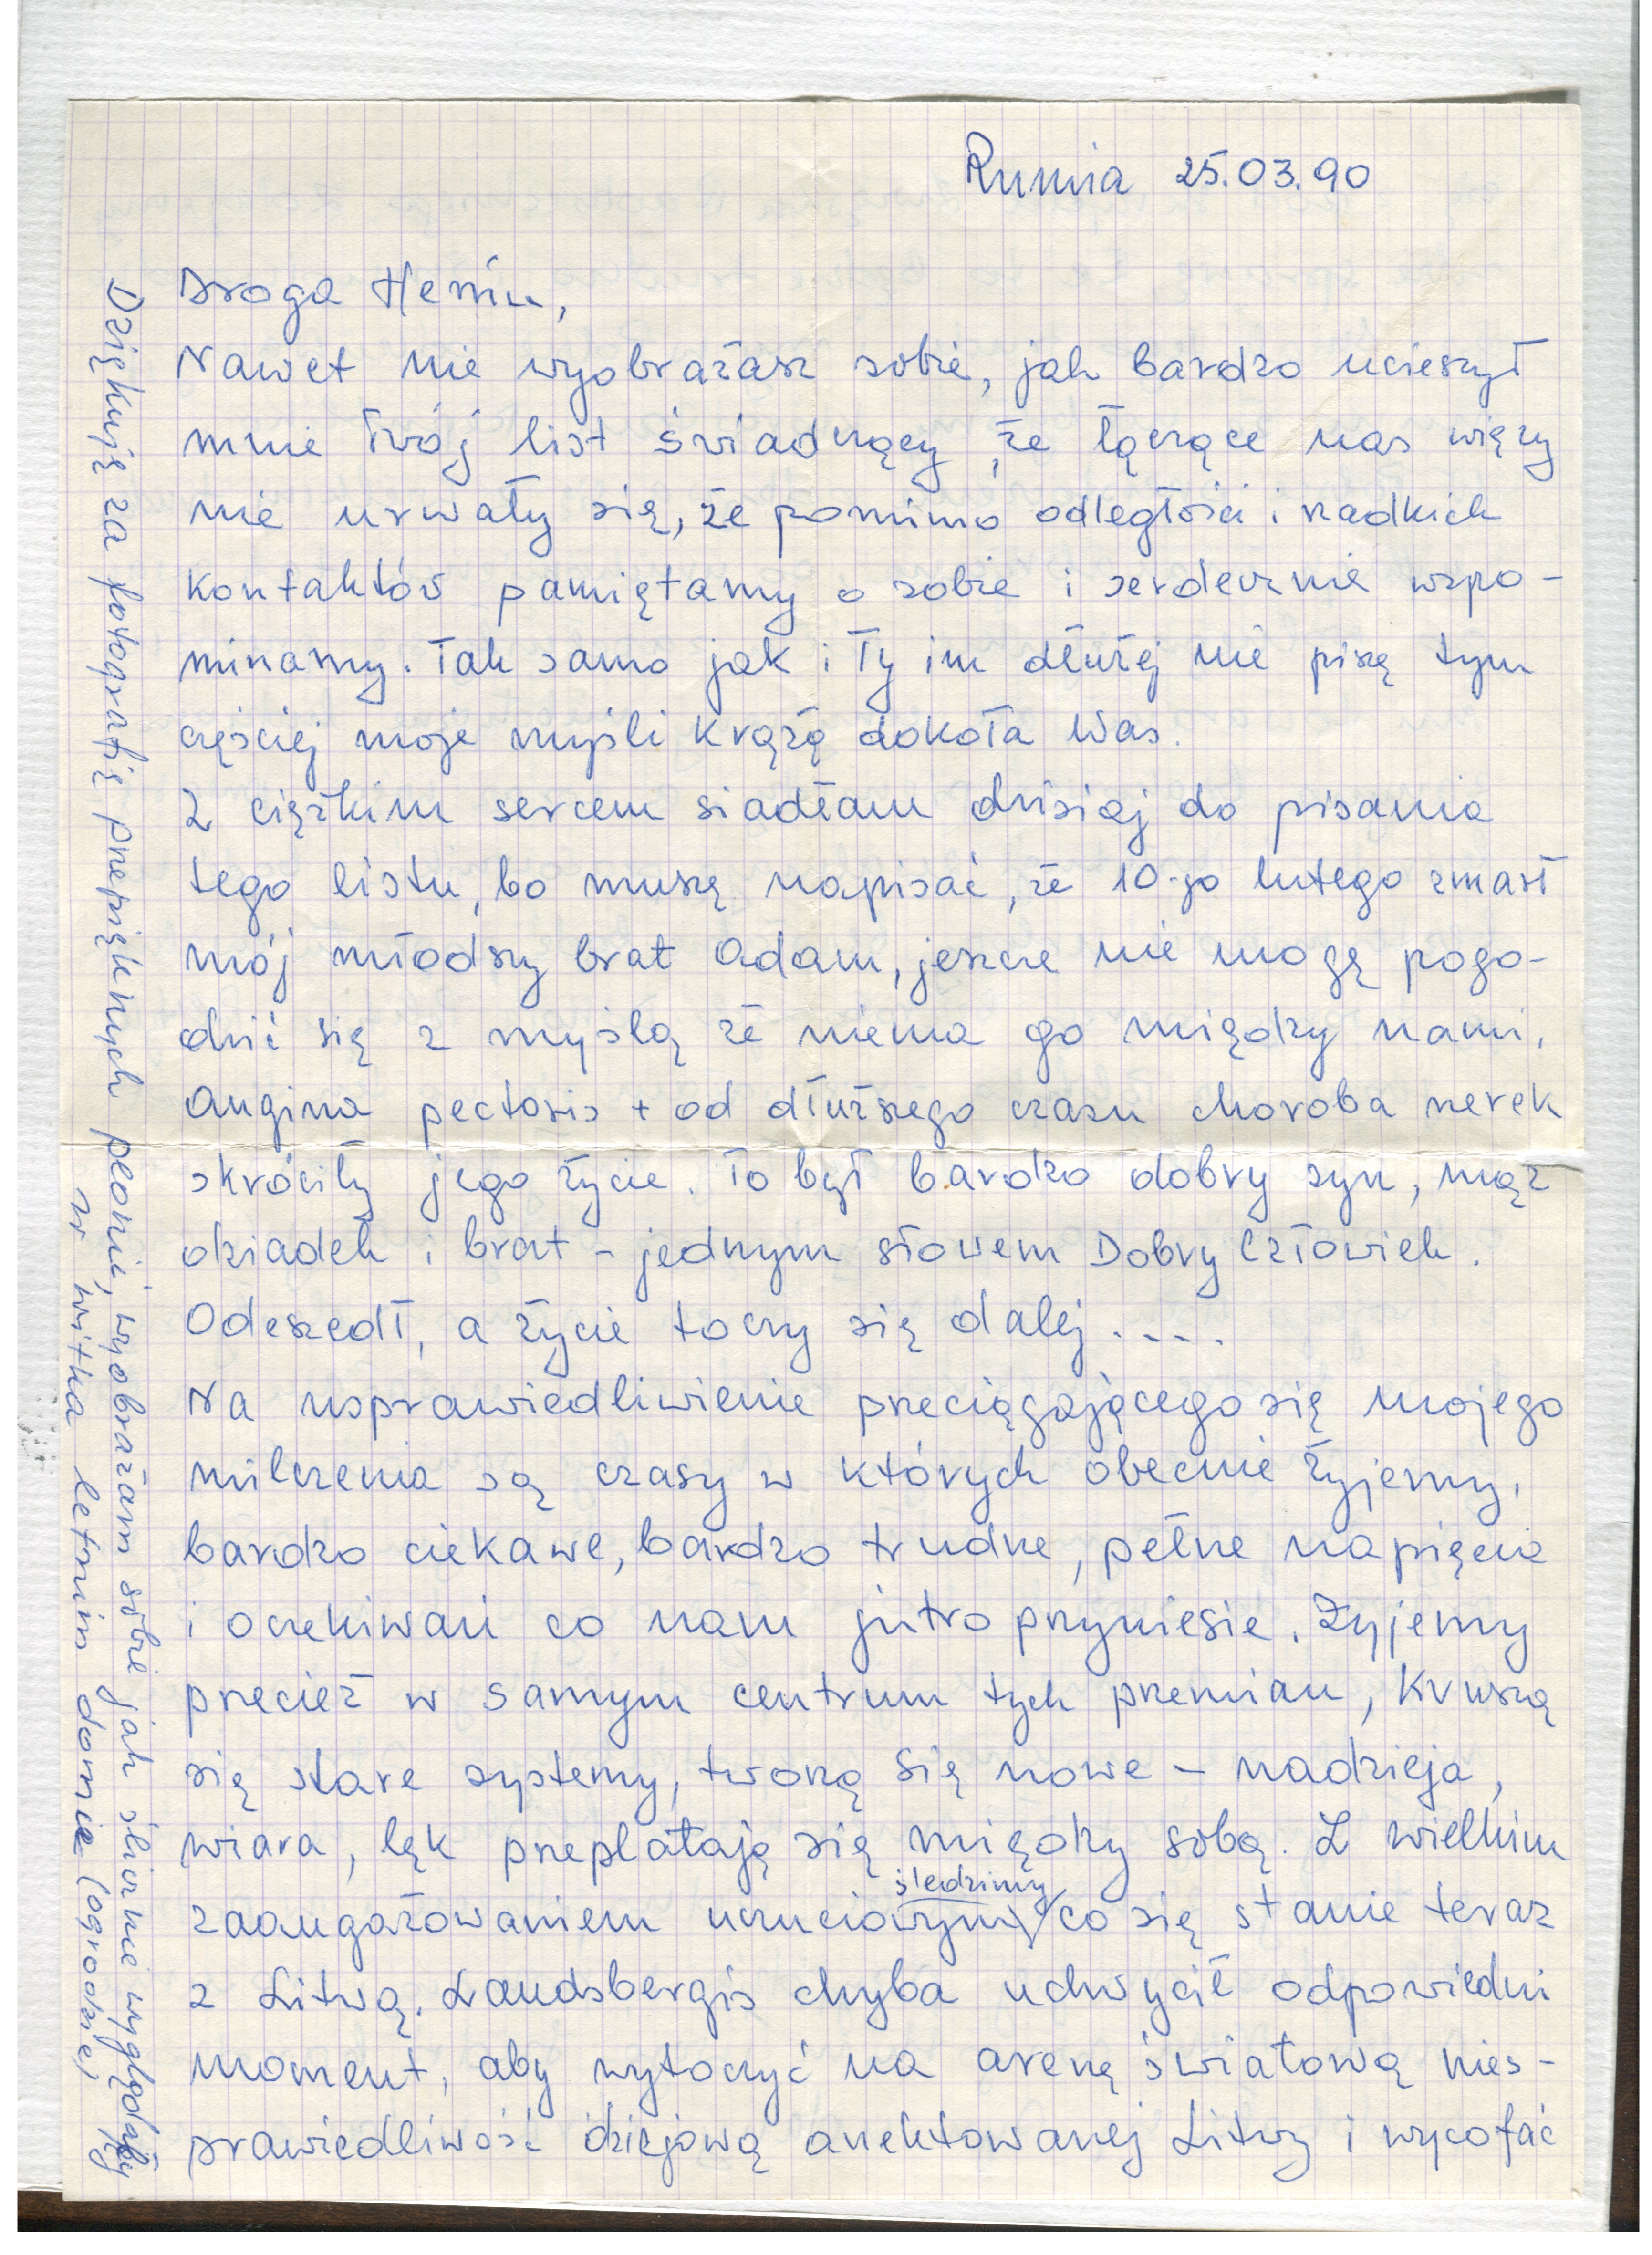 Rumia 25.03.90
Droga Heniu,
Nawet nie wyobrażasz sobie, jak bardzo ucieszył
mnie Twój list świadczący, że łączące nas więzy
nie urwały się, że pomimo odległości i rzadkich
kontaktów pamiętamy o sobie i serdecznie wspo-
minamy. Tak samo jak i Ty im dłużej nie piszę tym
częściej moje myśli krążą dokoła Was.
Z ciężkim sercem siadłam dzisiaj do pisania
tego listu, bo muszę napisać, że 10-go lutego zmarł
mój młodszy brat Adam, jeszcze nie mogę pogo-
dzić się z myślą że niema go między nami.
Angina pectoris + od dłuższego czasu choroba nerek
skróciły jego życie. To był bardzo dobry syn, mąż
dziadek i brat - jednym słowem Dobry Człowiek.
Odszedł, a życie toczy się dalej....
Na usprawiedliwienie przeciągającego się mojego
milczenia są czasy w których obecnie żyjemy,
bardzo ciekawe, bardzo trudne, pełne napięcia
i oczekiwań co nam jutro przyniesie. Żyjemy
przecież w samym centrum tych przemian, kruszą
się stare systemy, tworzą się nowe - nadzieja,
wiara, lęk przeplatają się między sobą. Z wielkim
zaangażowaniem uczuciowym śledzimy co się stanie teraz
z Litwą. Landsbergis chyba uchwycił odpowiedni
moment, aby wytoczyć na arenę światową nies-
prawiedliwość dziejową anektowanej Litwy i wycofać
Dziękuję za fotografię przepięknych peonii, wyobrażam sobie jak ślicznie wyglądałyby
w witka letnim domie (ogrodzie)